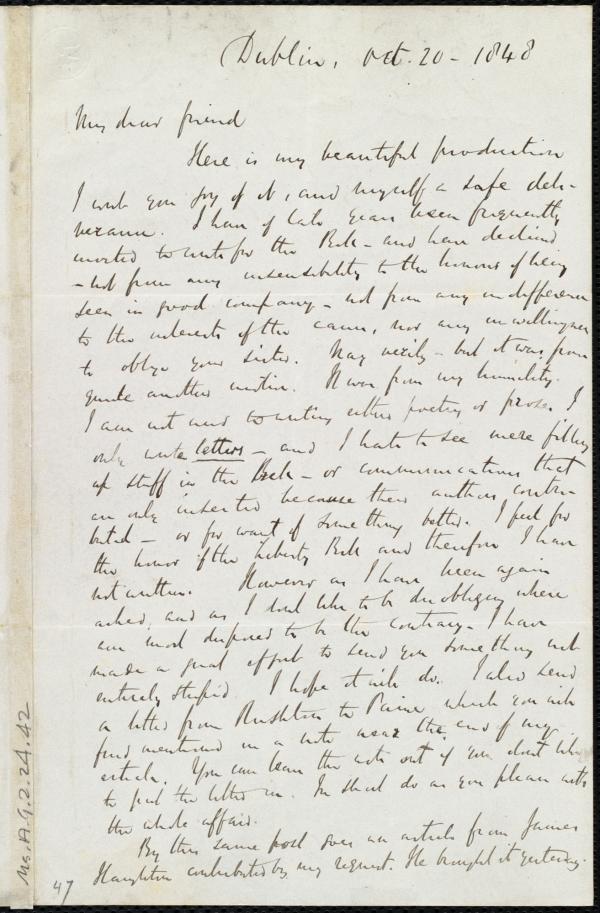 Dublin, Oct. 20 - 1848
My dear friend
Here is my beautiful production
I wish you joy of it, and myself a safe deli-
verance. I have of late years been frequently
invited to write for the Bell - and have declined
- not from any insensibility to the honour of being
seen in good company - not from any indifference
to the interests of the cause, nor any unwillingness
to oblige your sister. Nay verily - but it was from
quite another motive. It was from my humility.
I am not used to writing either poetry or prose. I
only write letters - and I hate to see mere filling
up stuff in the Bell - or communications that
are only inserted because their authors contri-
buted - or for want of something better. I feel for
the honor of the Liberty Bell and therefore I have
not written. However as I have been again
asked, and as I don't like to be disobliging where
I am most disposed to be the contrary - I have
made a great effort to send you something not
entirely stupid. I hope it will do. I also send
a letter from Rushton to Paine which you will
find mentioned in a note near the end of my
article. You can leave the note out if you don't like
to put the letter in. In short do as you please with
the whole affair.
By this same post goes an article from James
Haughton contributed by my request. He brought it yesterday.
Ms. A.9.2.24.42
47